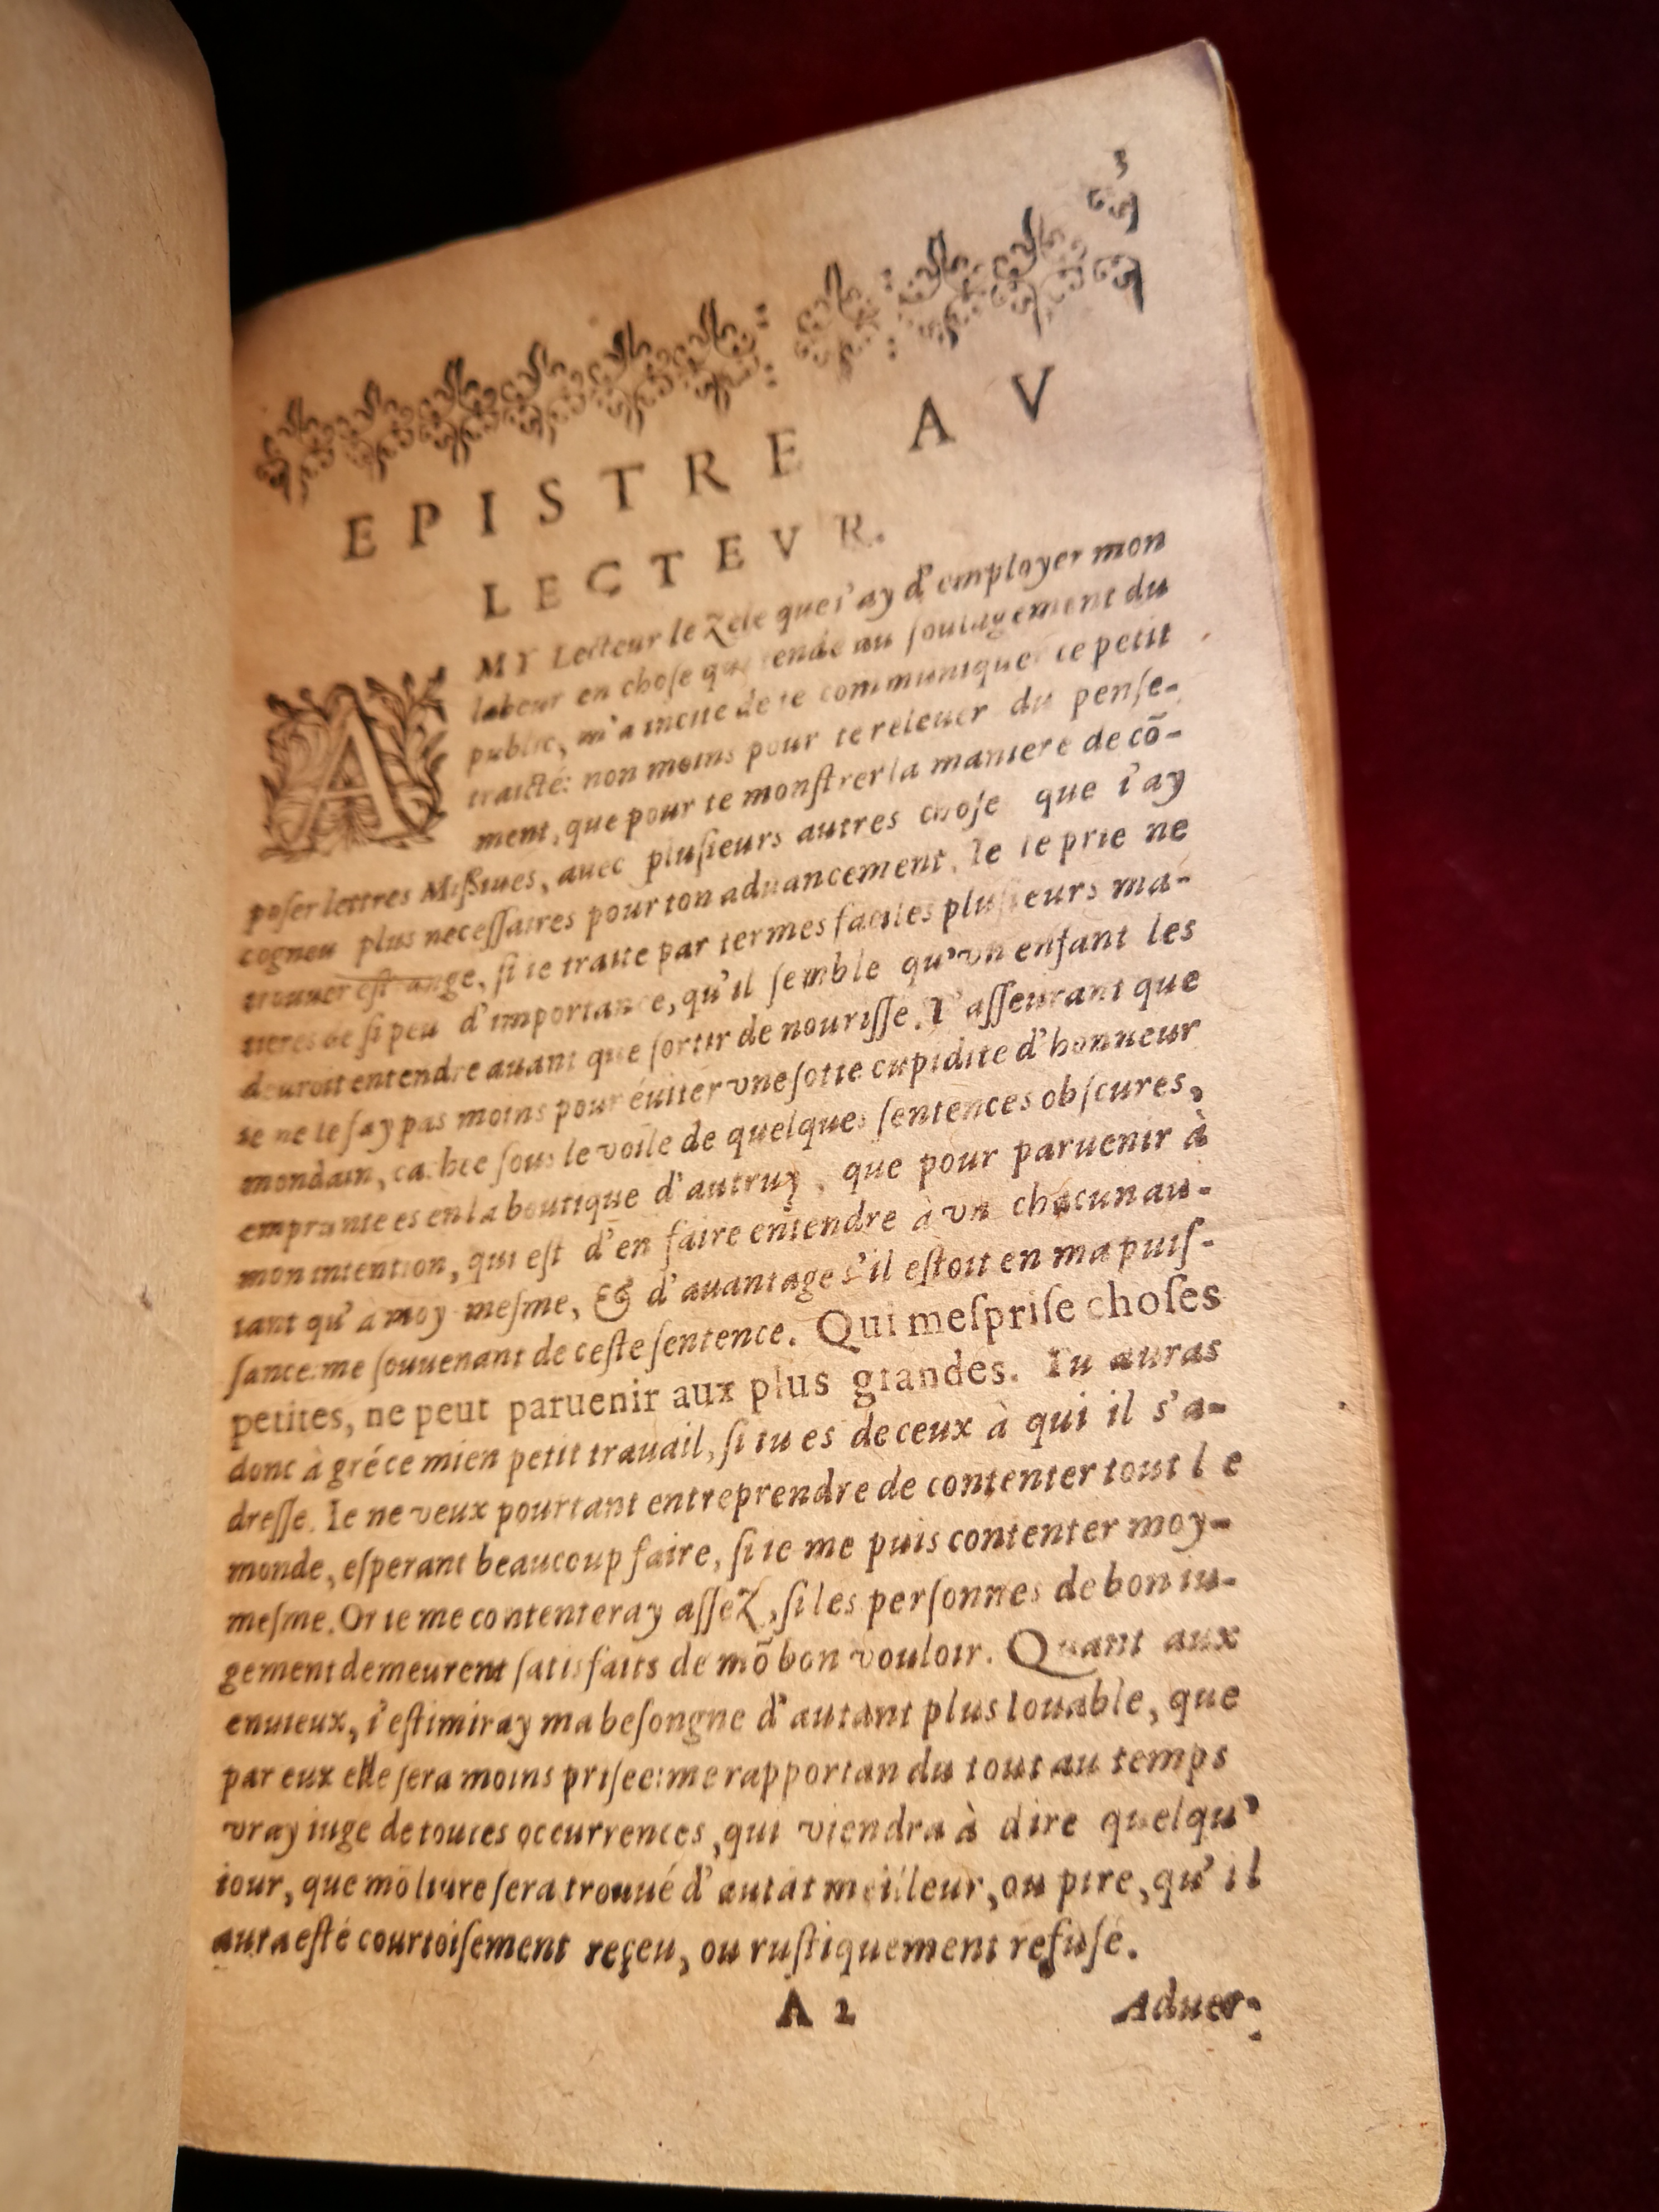 3
EPISTRE AV
LECTEVR.
AMY Lecteur le zele que i'ay d'employer mon
labeur en chose qui tende au soulagement du
public, m'a incité de te communiquer ce petit
traicté: non moins pour te releuer du pense-
ment, que pour te monstrer la maniere de cõ-
poser lettres Missiues, auec plusieurs autres chose que i'ay
cogneu plus necessaires pour ton aduancement. Ie te prie ne
trouuer estrange, si ie traite par termes faciles plusieurs ma-
tieres de si peu d'importance, qu'il semble qu'vn enfant les
deuroit entendre auant que sortir de nourisse. T'asseurant que
ie ne le fay pas moins pour éuiter vne sotte cupidite d'honneur
mondain, cachee sous le voile de quelques sentences obscures,
empruntees en la boutique d'autruy, que pour paruenir à
mon intention, qui est d'en faire entendre à vn chacun au-
tant qu'à moy-mesme, & d'auantage s'il estoit en ma puis-
sance: me souuenant de ceste sentence. Qui mesprise choses
petites, ne peut paruenir aux plus grandes. Tu auras
donc à gré ce mien petit trauail, si tu es de ceux à qui il s'a-
dresse. Ie ne veux pourtant entreprendre de contenter tout le
monde, esperant beaucoup faire, si ie me puis contenter moy-
mesme. Or ie me contenteray assez, si les personnes de bon iu-
gement demeurent satisfaits de mõ bon vouloir. Quant aux
enuieux, i'estimiray ma besongne d'autant plus louable, que
par eux elle sera moins prisee: me rapportan du tout au temps
vray iuge de toutes oceurrences, qui viendra à dire quelqu'
iour, que mõ liure sera trouué d'autāt meilleur, ou pire, qu'il
aura esté courtoisement reçeu, ou rustiquement refusé.
A 2 Aduer-